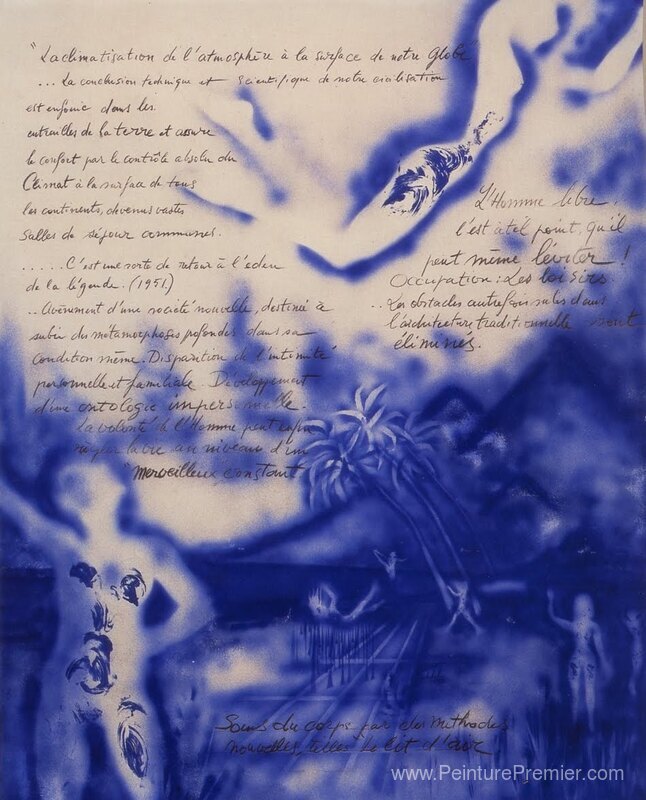 "La climatisation de l'atmosphère à la surface de notre Globe
... La conclusion technique et scientifique de notre civilisation
est enfouie dans les
entrailles de la terre et assure
le confort par le contrôle absolu du
Climat à la surface de tous
les continents, devenus vastes
Salles de séjour communes.
..... C'est une sorte de retour à l'eden
de la légende. (1951)
.. Avènement d'une société nouvelle, destinée à
subir des métamorphoses profondes dans sa
condition même. Disparition de l'intimité
personnelle et familiale. Développement
d'une ontologie impersonnelle.
La volonté de l'Homme peut enfin
la vie au niveau d'un
"Merveilleux constant
L'Homme libre,
l'est à tel point, qu'il
peut même léviter !
Occupation : Les loisirs
.. Les obstacles autrefois subis dans
l'architecture traditionnelle sont
éliminés.
Soins du corps par des méthodes
nouvelles, telles le lit d'air.
www.PeinturePremier.com